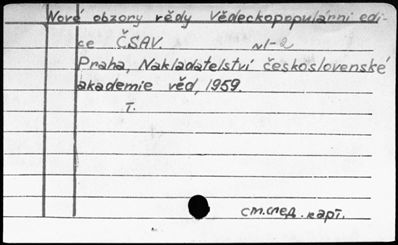 Nové obzory vědy Vědeckopopulárni edi-
ce ČSAV. N1-2
Praha, Nakladatelství československé
akademie věd, 1959.
T.
см.след.карт.